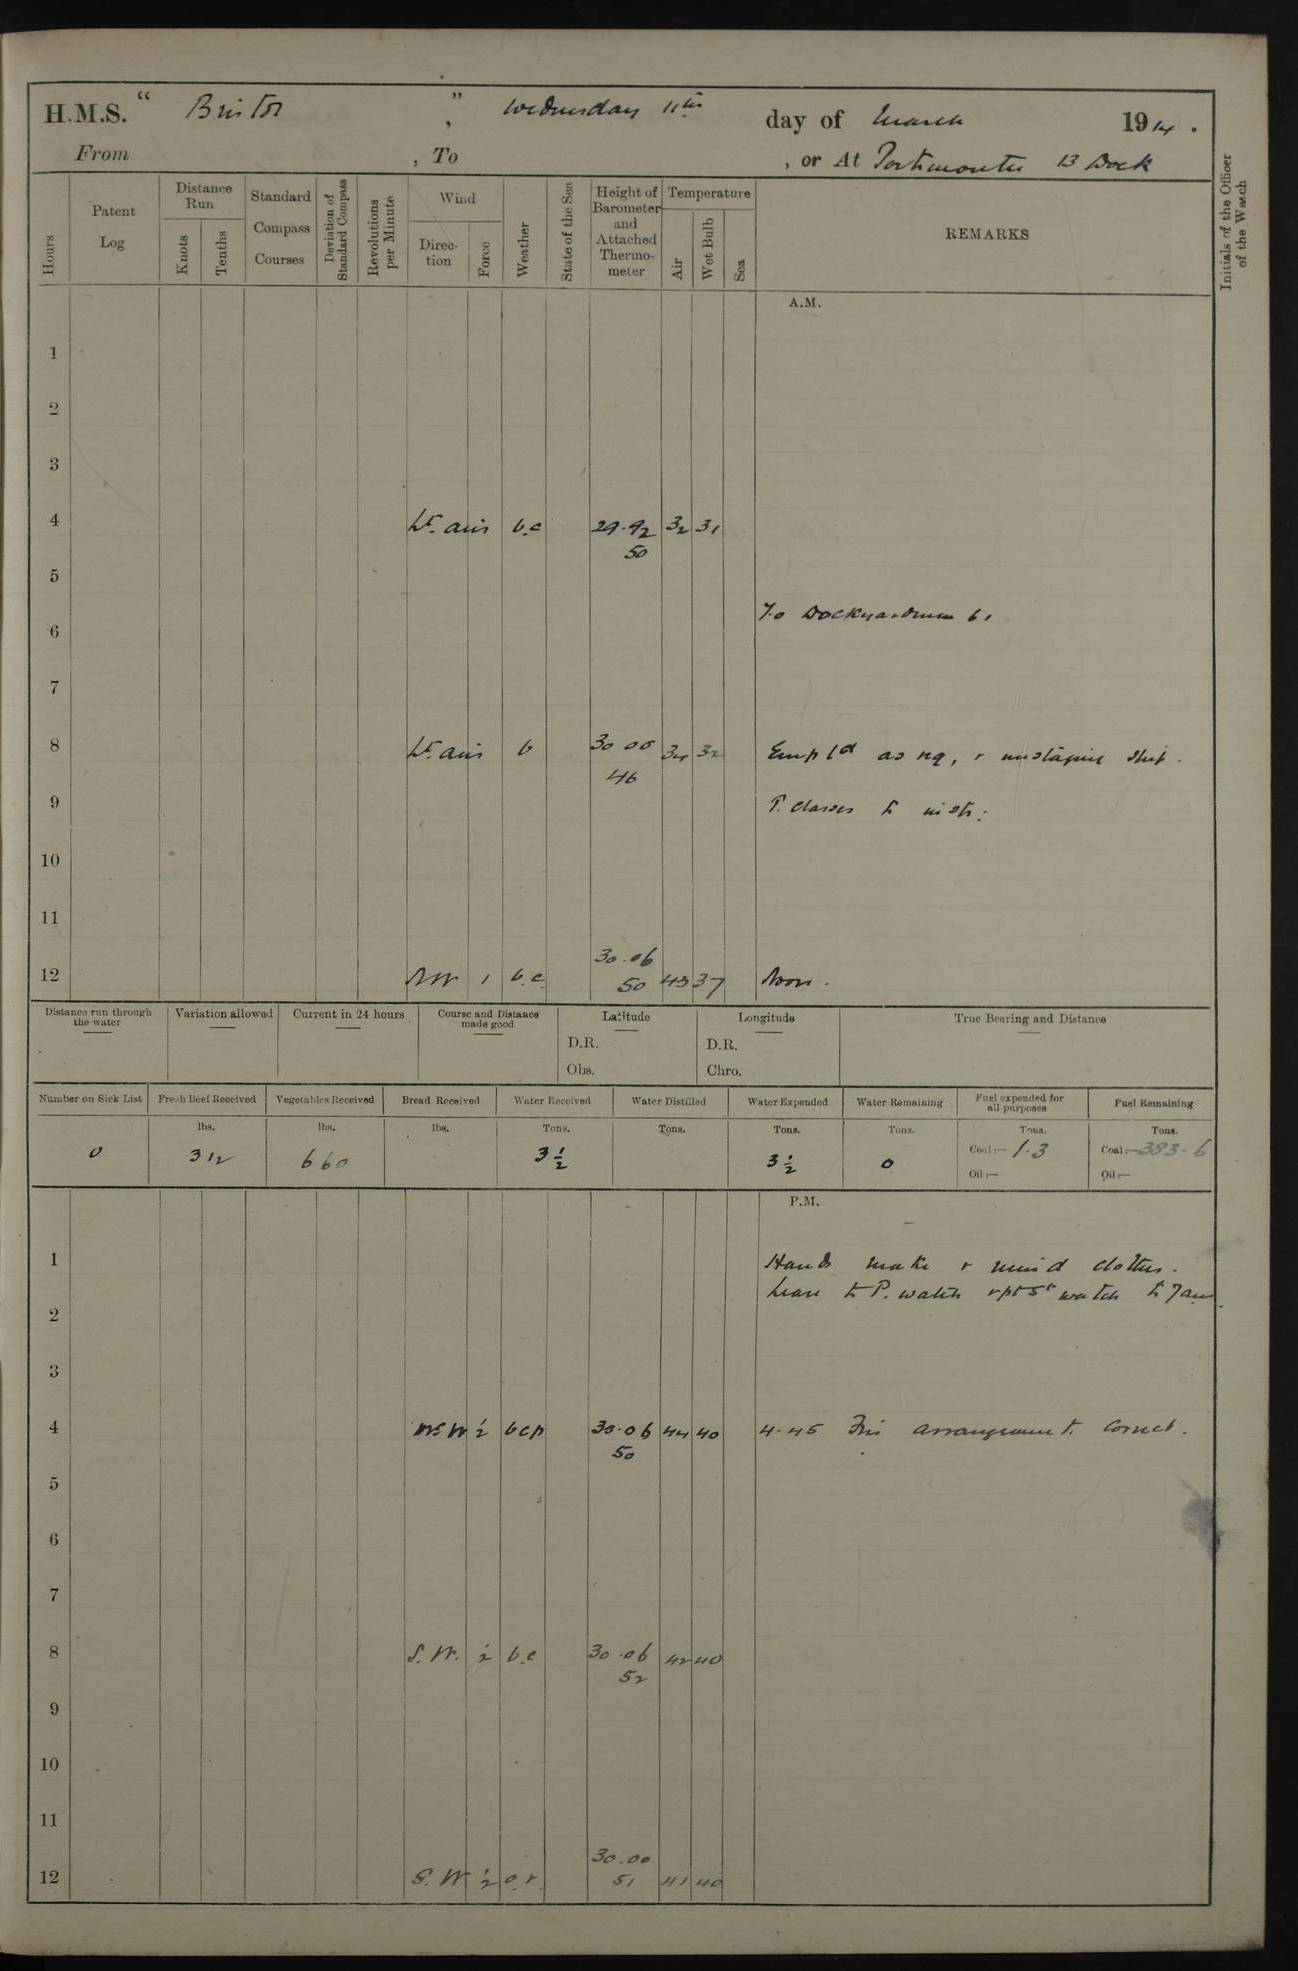 H.M.S. " Bristol ", Wednesday 11th day of March 1914.
From , To , or At Portsmouth 13 Dock
Hours
Patent Log
Distance Run
Knots
Tenths
Standard Compass Courses
Deviation of Standard Compass
Revolutions per Minute
Wind
Direction
Force
Weather
State of the Sea
Height of Barometer and Attached Thermometer
Temperature
Air
Wet Bulb
Sea
REMARKS
Initials of the Officer of the Watch
A.M.
1
2
3
4 Lt. airs b.c 29.92 32 31
50
5
To Dockyardmen 61
6
7
8 Lt. airs b 30 00 34 32 Empld as req, & ship.
46
9 P. classes to instr:
10
11
30.06
12 NW 1 b.c. 50 43 37 Noon.
Distance run through the water
Variation allowed
Current in 24 hours
Course and Distance made good
Latitude
D.R.
Obs.
Longitude
D.R.
Chro.
True Bearing and Distance
Number on Sick List 0
Fresh Beef Received lbs. 312
Vegetables Received lbs. 660
Bread Received lbs.
Water Received Tons. 3 1/2
Water Distilled Tons.
Water Expended Tons. 3 1/2
Water Remaining Tons. 0
Fuel expended for all purposes Tons. Coal:— 1.3 Oil:—
Fuel Remaining Tons. Coal:— 383.6 Oil:—
P.M.
1 Hands make & mend clothes.
Leave to P. watch & pt Sd watch to 7am.
2
3
4 WSW 1/2 bcp 30.06 44 40 4.45 Fire arrangements correct.
50
5
6
7
8 S.W. 1/2 b.c 30.06 42 40
52
9
10
11
30.00
12 S.W 1/2 o.r. 51 41 40